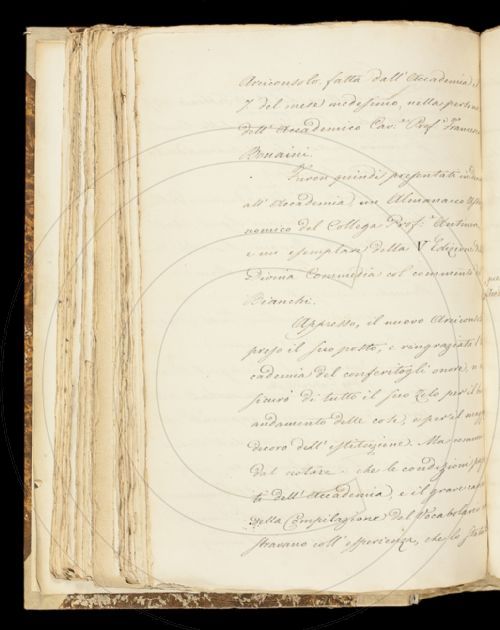 Arciconsolo fatta dall'Accademia il
7 del mese medesimo, nella persona
dell'Accademico Cav.e Prof.e Francesco
Bonaini.
Furon quindi presentati in dono
all'Accademia, un Almanacco Astro
nomico del Collega Prof.e Antinori
e un esemplare della V Edizione della
Divina Commedia col commento
Bianchi.
Appresso, il nuovo Arciconsolo
preso il suo posto, e ringraziata l'Ac
cademia del conferitogli onore,
di tutto il suo zelo per il
andamento delle cose, e per il
decoro dell'istituzione. Ma
dal notare che le condizioni
dell'Accademia, e il grave
nella Compilazione del Vocabolario
stravano coll'esperienza, che lo